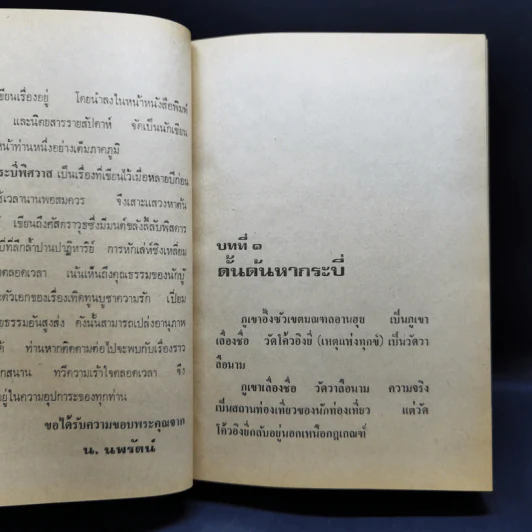 ขียนเรื่องอยู่ โดยนำลงในหน้าหนังสือพิมพ์
และนิตยสารรายสัปดาห์ จัดเป็นนักเขียน
หน้าท่านหนึ่งอย่างเต็มภาคภูมิ
ระบี่พิศวาส เป็นเรื่องที่เขียนไว้เมื่อหลายปีก่อน
ช้เวลานานพอสมควร จึงเสาะแสวงหาต้น
เขียนถึงศัสตราวุธซึ่งมีมนต์ขลังลี้ลับพิสดาร
บี่ที่ลึกล้ำปานปาฏิหาริย์ การหักเล่ห์ชิงเหลี่ยม
ตลอดเวลา เน้นเห็นถึงคุณธรรมของนักบู๊
ะตัวเอกของเรื่องเทิดทูนบูชาความรัก เปี่ยม
ยธรรมอันสูงส่ง ดังนั้นสามารถเปล่งอานุภาพ
ด้ ท่านหากติดตามต่อไปจะพบกับเรื่องราว
กสนาน ทวีความเร้าใจตลอดเวลา จึง
อยู่ในความอุปการะของทุกท่าน
ขอได้รับความขอบพระคุณจาก
น. นพรัตน์
บทที่ ๑
ดั้นด้นหากระบี่
ภูเขาอึ้งซัวเขตมณฑลอานฮุย เป็นภูเขา
เลื่องชื่อ วัดโค้วอิงยี่ (เหตุแห่งทุกข์) เป็นวัดวา
ลือนาม
ภูเขาเลื่องชื่อ วัดวาลือนาม ความจริง
เป็นสถานท่องเที่ยวของนักท่องเที่ยว แต่วัด
โค้วอิงยี่กลับอยู่นอกเหนือกฎเกณฑ์